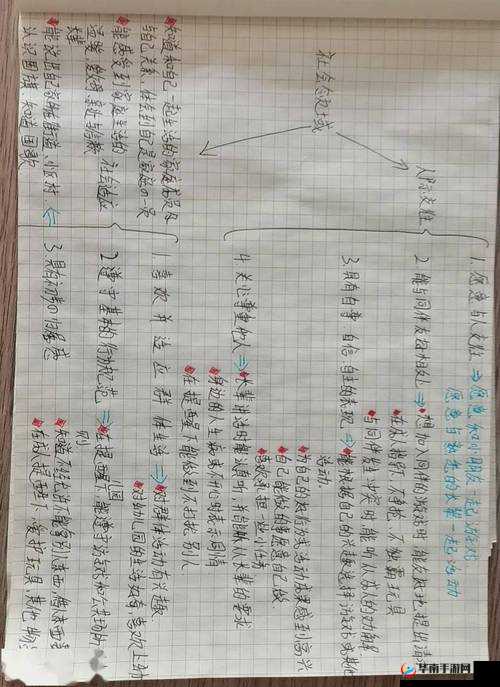 社会态度域
人际交往
1. 愿意与人交往 ⇒ 愿意和小朋友一起游戏
愿意与熟悉的长辈一起活动
2. 能与同伴友好相处 ⇒ 想加入同伴的游戏时,能友好地提出请
在成人指导下,不争抢、不独霸玩具
与同伴发生冲突时,能听从成人的劝解
3. 具有自尊、自信、自主的表现 ⇒ 能根据自己的兴趣选择游戏或其他
活动.
为自己的好行为或活动成果感到高兴
自己能做的事情愿意自己做
喜欢承担一些小任务
4. 关心尊重他人 ⇒ 长辈讲话时能认真听,并能听从长辈的要求
身边的人生病或不开心时表示同情
在提醒下能做到不打扰别人
社会适应
1. 喜欢并适应群体生活 ⇒ 对群体活动有兴趣
对幼儿园的生活好奇,喜欢上幼
儿园
2. 遵守基本的行为规范 ⇒ 在提醒下,能遵守游戏和公共场所
规则
知道不经允许不能拿别人东西,借东西要
在成人提醒下,爱护玩具其他物品
3. 具有初步的归属感
知道和自己一起生活的家庭成员及
与自己关系,体会到自己是家庭的一员
能感受到家庭生活的
温暖,爱父母,亲近与信赖
长辈
能说出自己家所在街道、小区/村
认识国旗,知道国歌
华南手游网